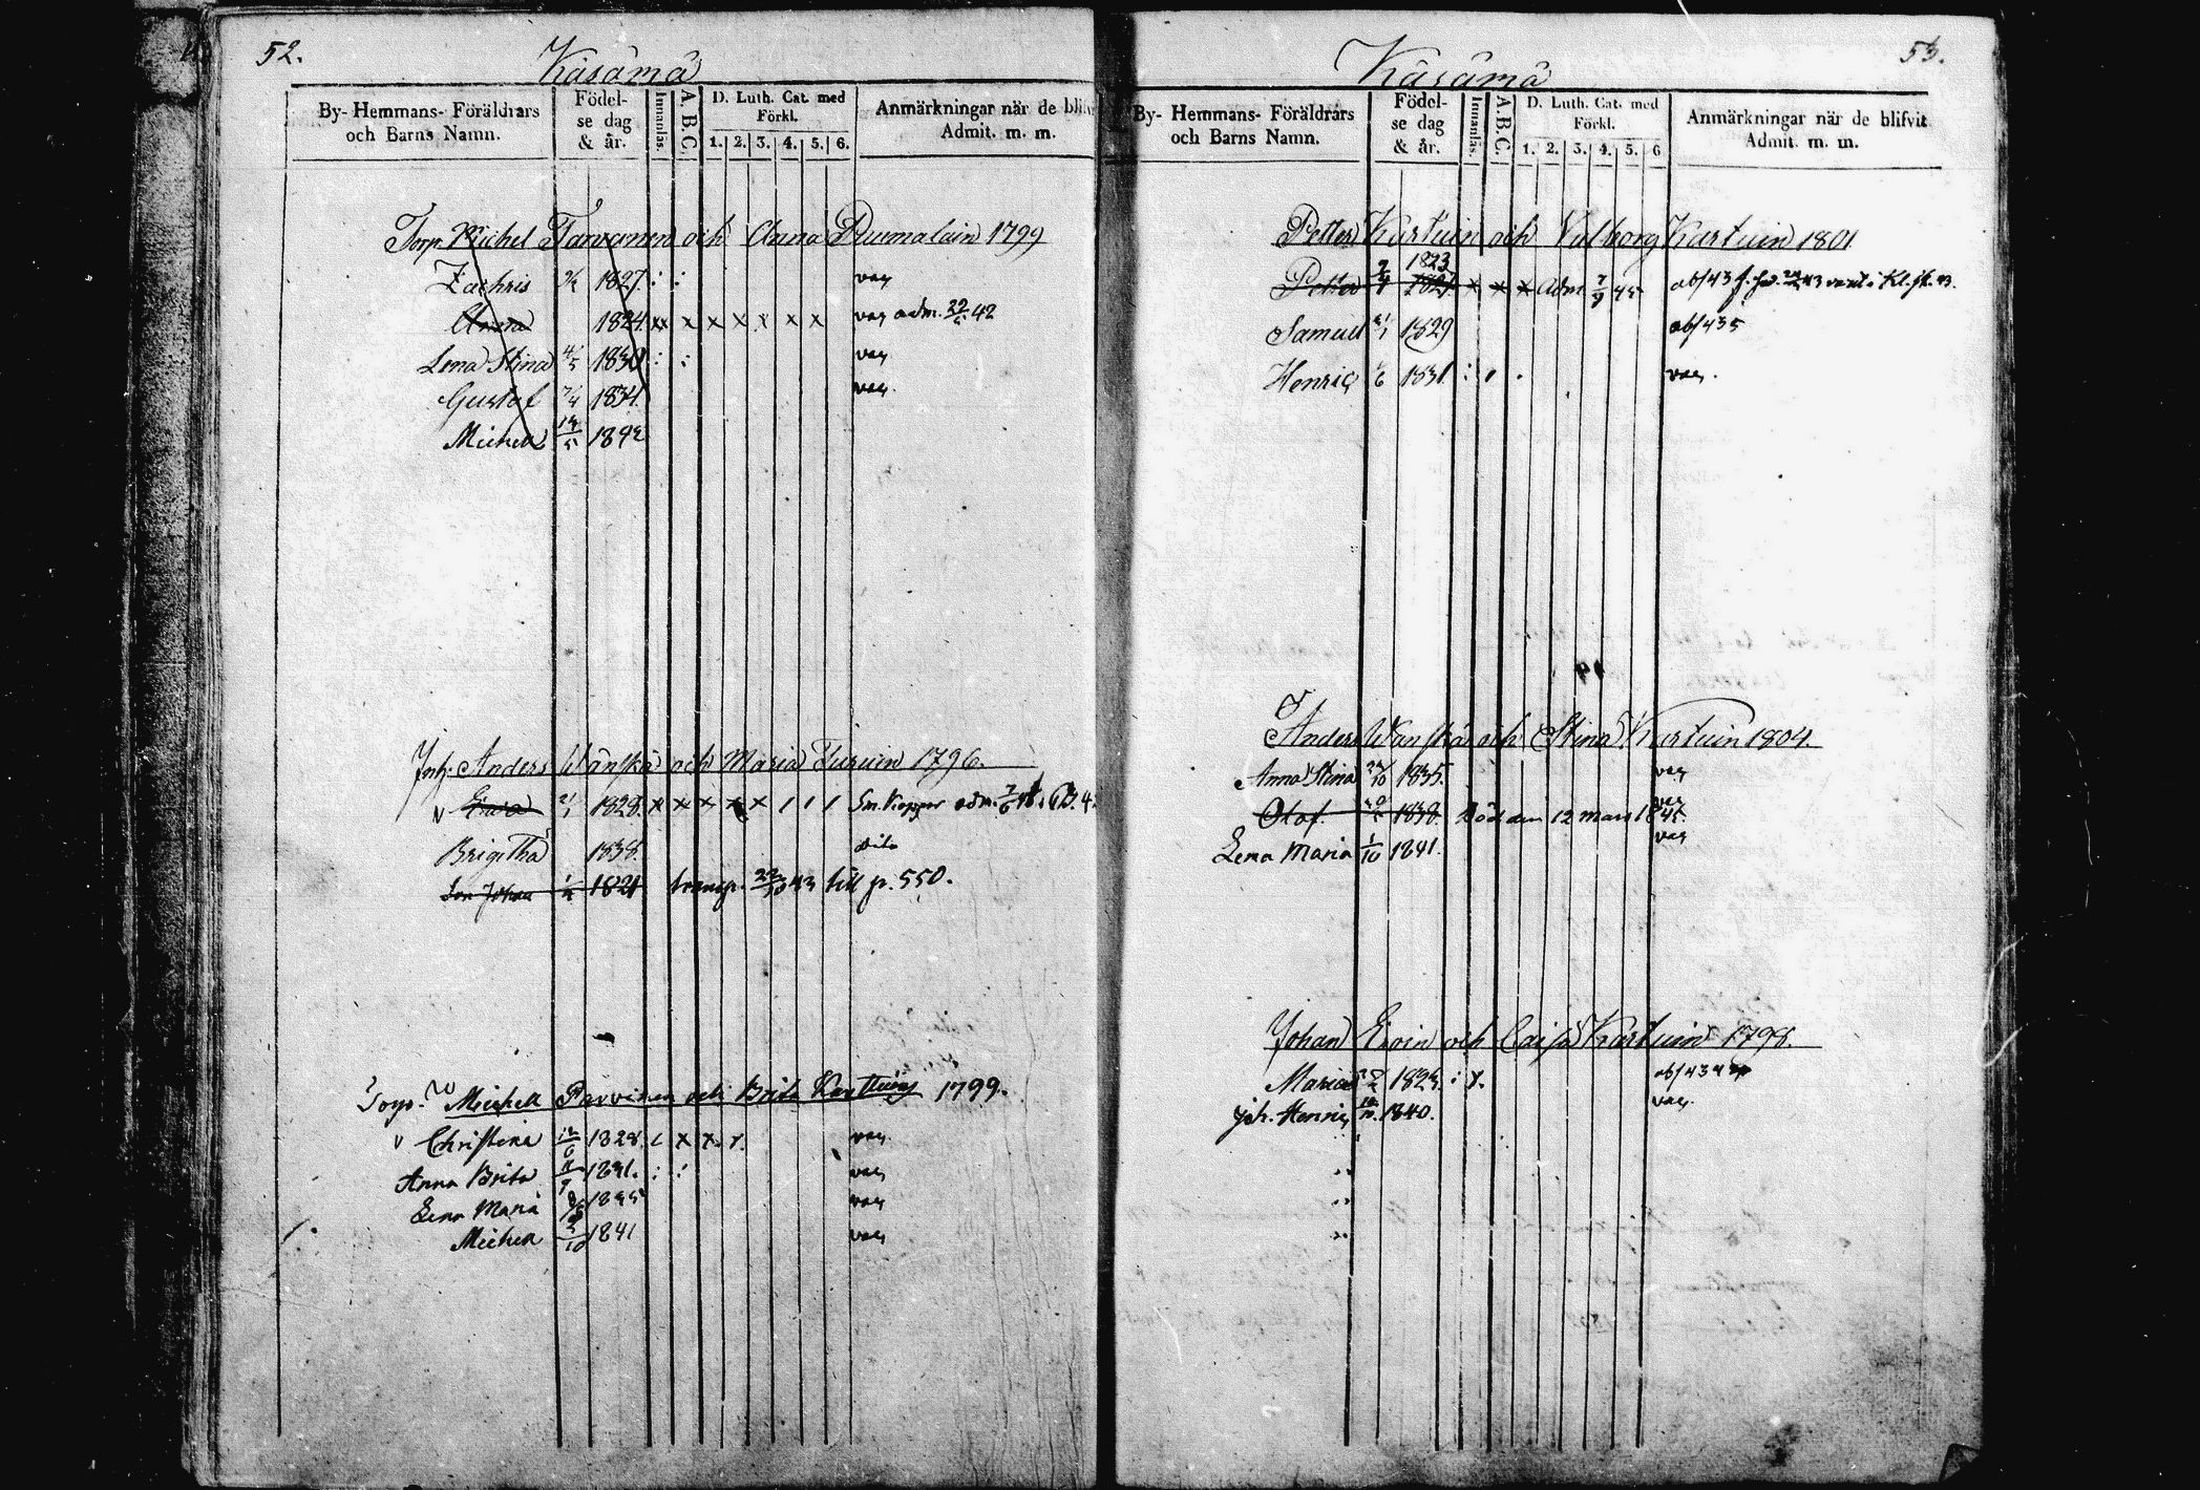 52.
Käsämä
By- Hemmans- Föräldrars och Barns Namn.
Födelse dag & år.
Innanläs.
A.B.C.
D. Luth. Cat. med Förkl.
1. 2. 3. 4. 5. 6.
Anmärkningar när de blifv
Admit. m. m.
Torp. Michel Tarvanen och Anna Duunalain 1799
Zachris 1827 : : vac
Anna 1824 xx x x x x x x vac adm. 22/5 42
Lena Stina 4/5 1830 : : vac
Gustaf 7/4 1834 vac
Michel 1842
Inh. Anders Wänskä och Maria Turuin 1796.
v 1828. x x x x x / / /
Brigitha 1838. dito
Son Johan 1821 transp. till p. 550.
Torp. Michell Parvinen och Brita 1799.
v Christina 12/6 1828. x x x. vac
Anna Brita 1831. : : vac
Lena Maria vac
Michell 3/10 1841 vac
53.
Käsämä
By- Hemmans- Föräldrars och Barns Namn.
Födelse dag & år.
Innanläs.
A.B.C.
D. Luth. Cat. med Förkl.
1. 2. 3. 4. 5. 6
Anmärkningar när de blifvit
Admit. m. m.
Petter Kartuin och Valborg Kartuin 1801
1823
Petter 1821. x x x adm 7/9 45
Samuel 1829 abs 435
Henric 1831. : vac.
Anders Wänskä och Stina Kartuin 1804.
Anna Stina 1835. vac
Olof. 1838. död den 12 mars 1845 vac
Lena Maria 1/10 1841. vac
Johan Eroin och Caisa Kartuin 1798.
Maria 1823. : x.
Joh. Henric 1840. vac